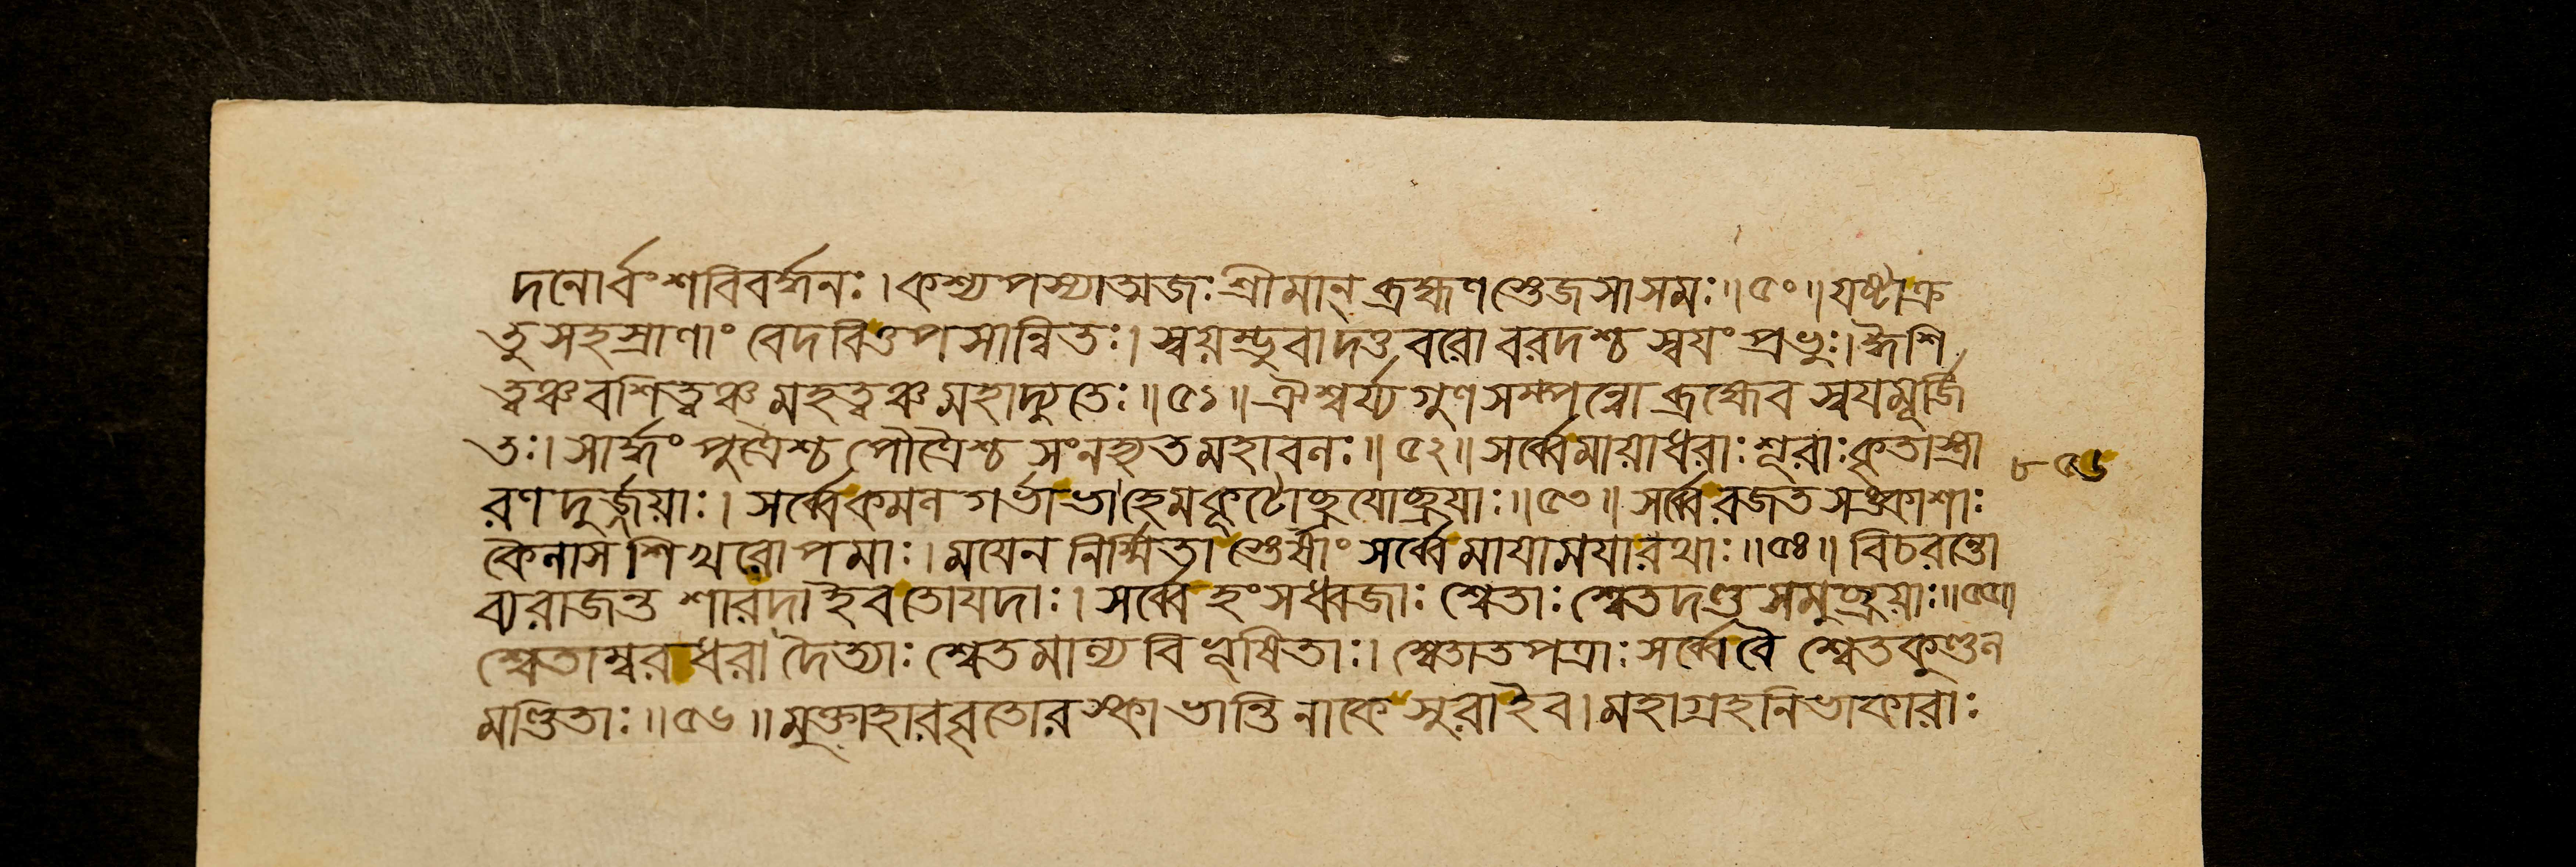 দনোর্বংশবিবর্দ্ধনঃ। কশ্যপস্যাত্মজঃ শ্রীমান্ ব্রহ্মণস্তেজসাসমঃ॥৫০॥ যষ্টাক্র
তুসহস্রাণাং বেদবিত্তপসান্বিতঃ। স্বয়ম্ভুবাদত্তবরোবরদশ্চ স্বযং প্রভুঃ। ঈশি
ত্বঞ্চবশিত্বঞ্চ মহত্বঞ্চ মহাদ্যুতেঃ॥৫১॥ ঐশ্বর্য্যগুণসম্পন্নো ব্রহ্মেব স্বযমূর্জি
তঃ। সার্দ্ধং পুত্রৈশ্চ পৌত্রৈশ্চ সংনহ্যত মহাবলঃ॥৫২॥ সর্ব্বেমায়াধরাঃ শূরাঃ কৃতাস্ত্রা
রণদুর্জ্জয়াঃ। সর্ব্বেকমলগর্ভাভাহেমকূটোচ্ছ্রযোচ্ছ্রয়াঃ॥৫৩॥ সর্ব্বেরজতসঙ্কাশাঃ
কৈলাসশিখরোপমাঃ। মযেন নির্ম্মিতাস্তেষাং সর্ব্বেমাযামযারথাঃ॥৫৪॥ বিচরন্তো
ব্যরাজন্ত শারদাইবতোযদাঃ। সর্ব্বে হংসধ্বজাঃ শ্বেতাঃ শ্বেতদণ্ডসমুচ্ছ্রয়াঃ॥৫৫॥
শ্বেতাম্বরধরা দৈত্যাঃ শ্বেতমাল্যবিভূষিতাঃ। শ্বেতাতপত্রাঃ সর্ব্বেবৈ শ্বেতকুণ্ডল
মণ্ডিতাঃ॥৫৬॥ মুক্তাহারবৃতোরস্কাভান্তিনাকে সুরাইব। মহাগ্রহনিভাকারাঃ